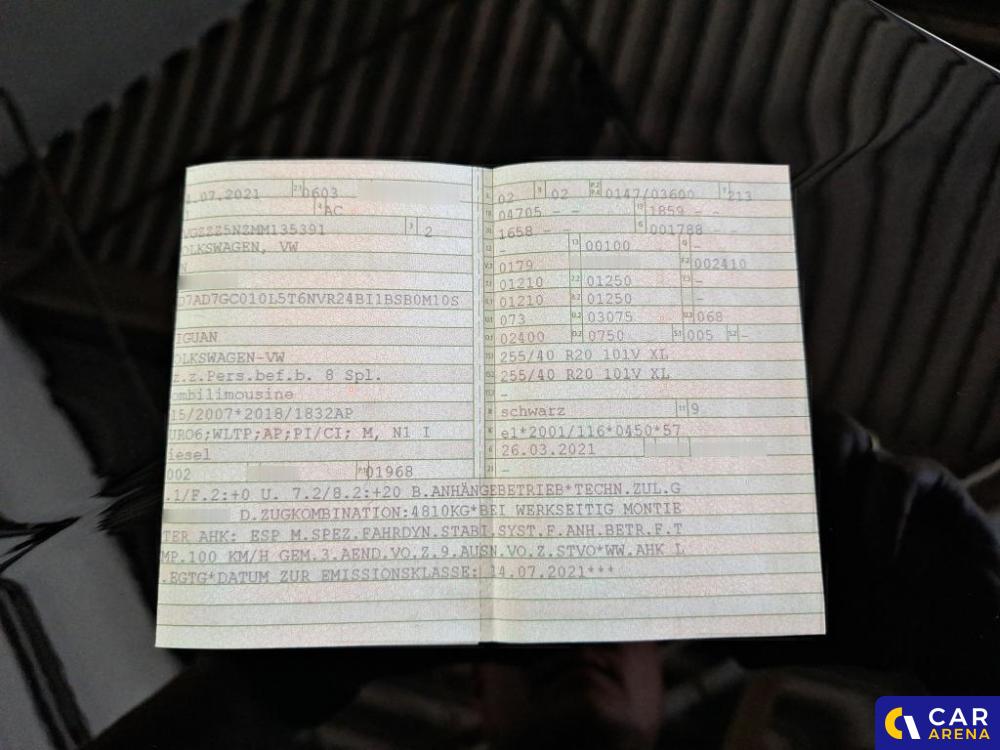 1.07.2021 2.1 0603
4 AC
VGZZZ5NZMM135391 3 2
OLKSWAGEN, VW
N
D7AD7GC010L5T6NVR24BI1BSB0M10S
IGUAN
OLKSWAGEN-VW
z.z.Pers.bef.b. 8 Spl.
ombilimousine
15/2007*2018/1832AP
URO6;WLTP;AP;PI/CI; M, N1 I
iesel
002 01968
02 9 02 P.2 P.4 0147/03600 T 213
04705 - - 1859 - -
1658 - - G 001788
- 13 00100 Q -
0179 F.2 002410
01210 7.2 01250 7.3 -
01210 8.2 01250 -
073 U.2 03075 U.3 068
02400 O.2 0750 S.1 005 S.2 -
255/40 R20 101V XL
255/40 R20 101V XL
-
schwarz 11 9
e1*2001/116*0450*57
26.03.2021
-
.1/F.2:+0 U. 7.2/8.2:+20 B.ANHÄNGEBETRIEB*TECHN.ZUL.G
D.ZUGKOMBINATION:4810KG*BEI WERKSEITIG MONTIE
TER AHK: ESP M.SPEZ.FAHRDYN.STABI.SYST.F.ANH.BETR.F.T
MP.100 KM/H GEM.3.AEND.VO.Z.9.AUSN.VO.Z.STVO*WW.AHK L
.EGTG*DATUM ZUR EMISSIONSKLASSE: 14.07.2021***
CAR
ARENA